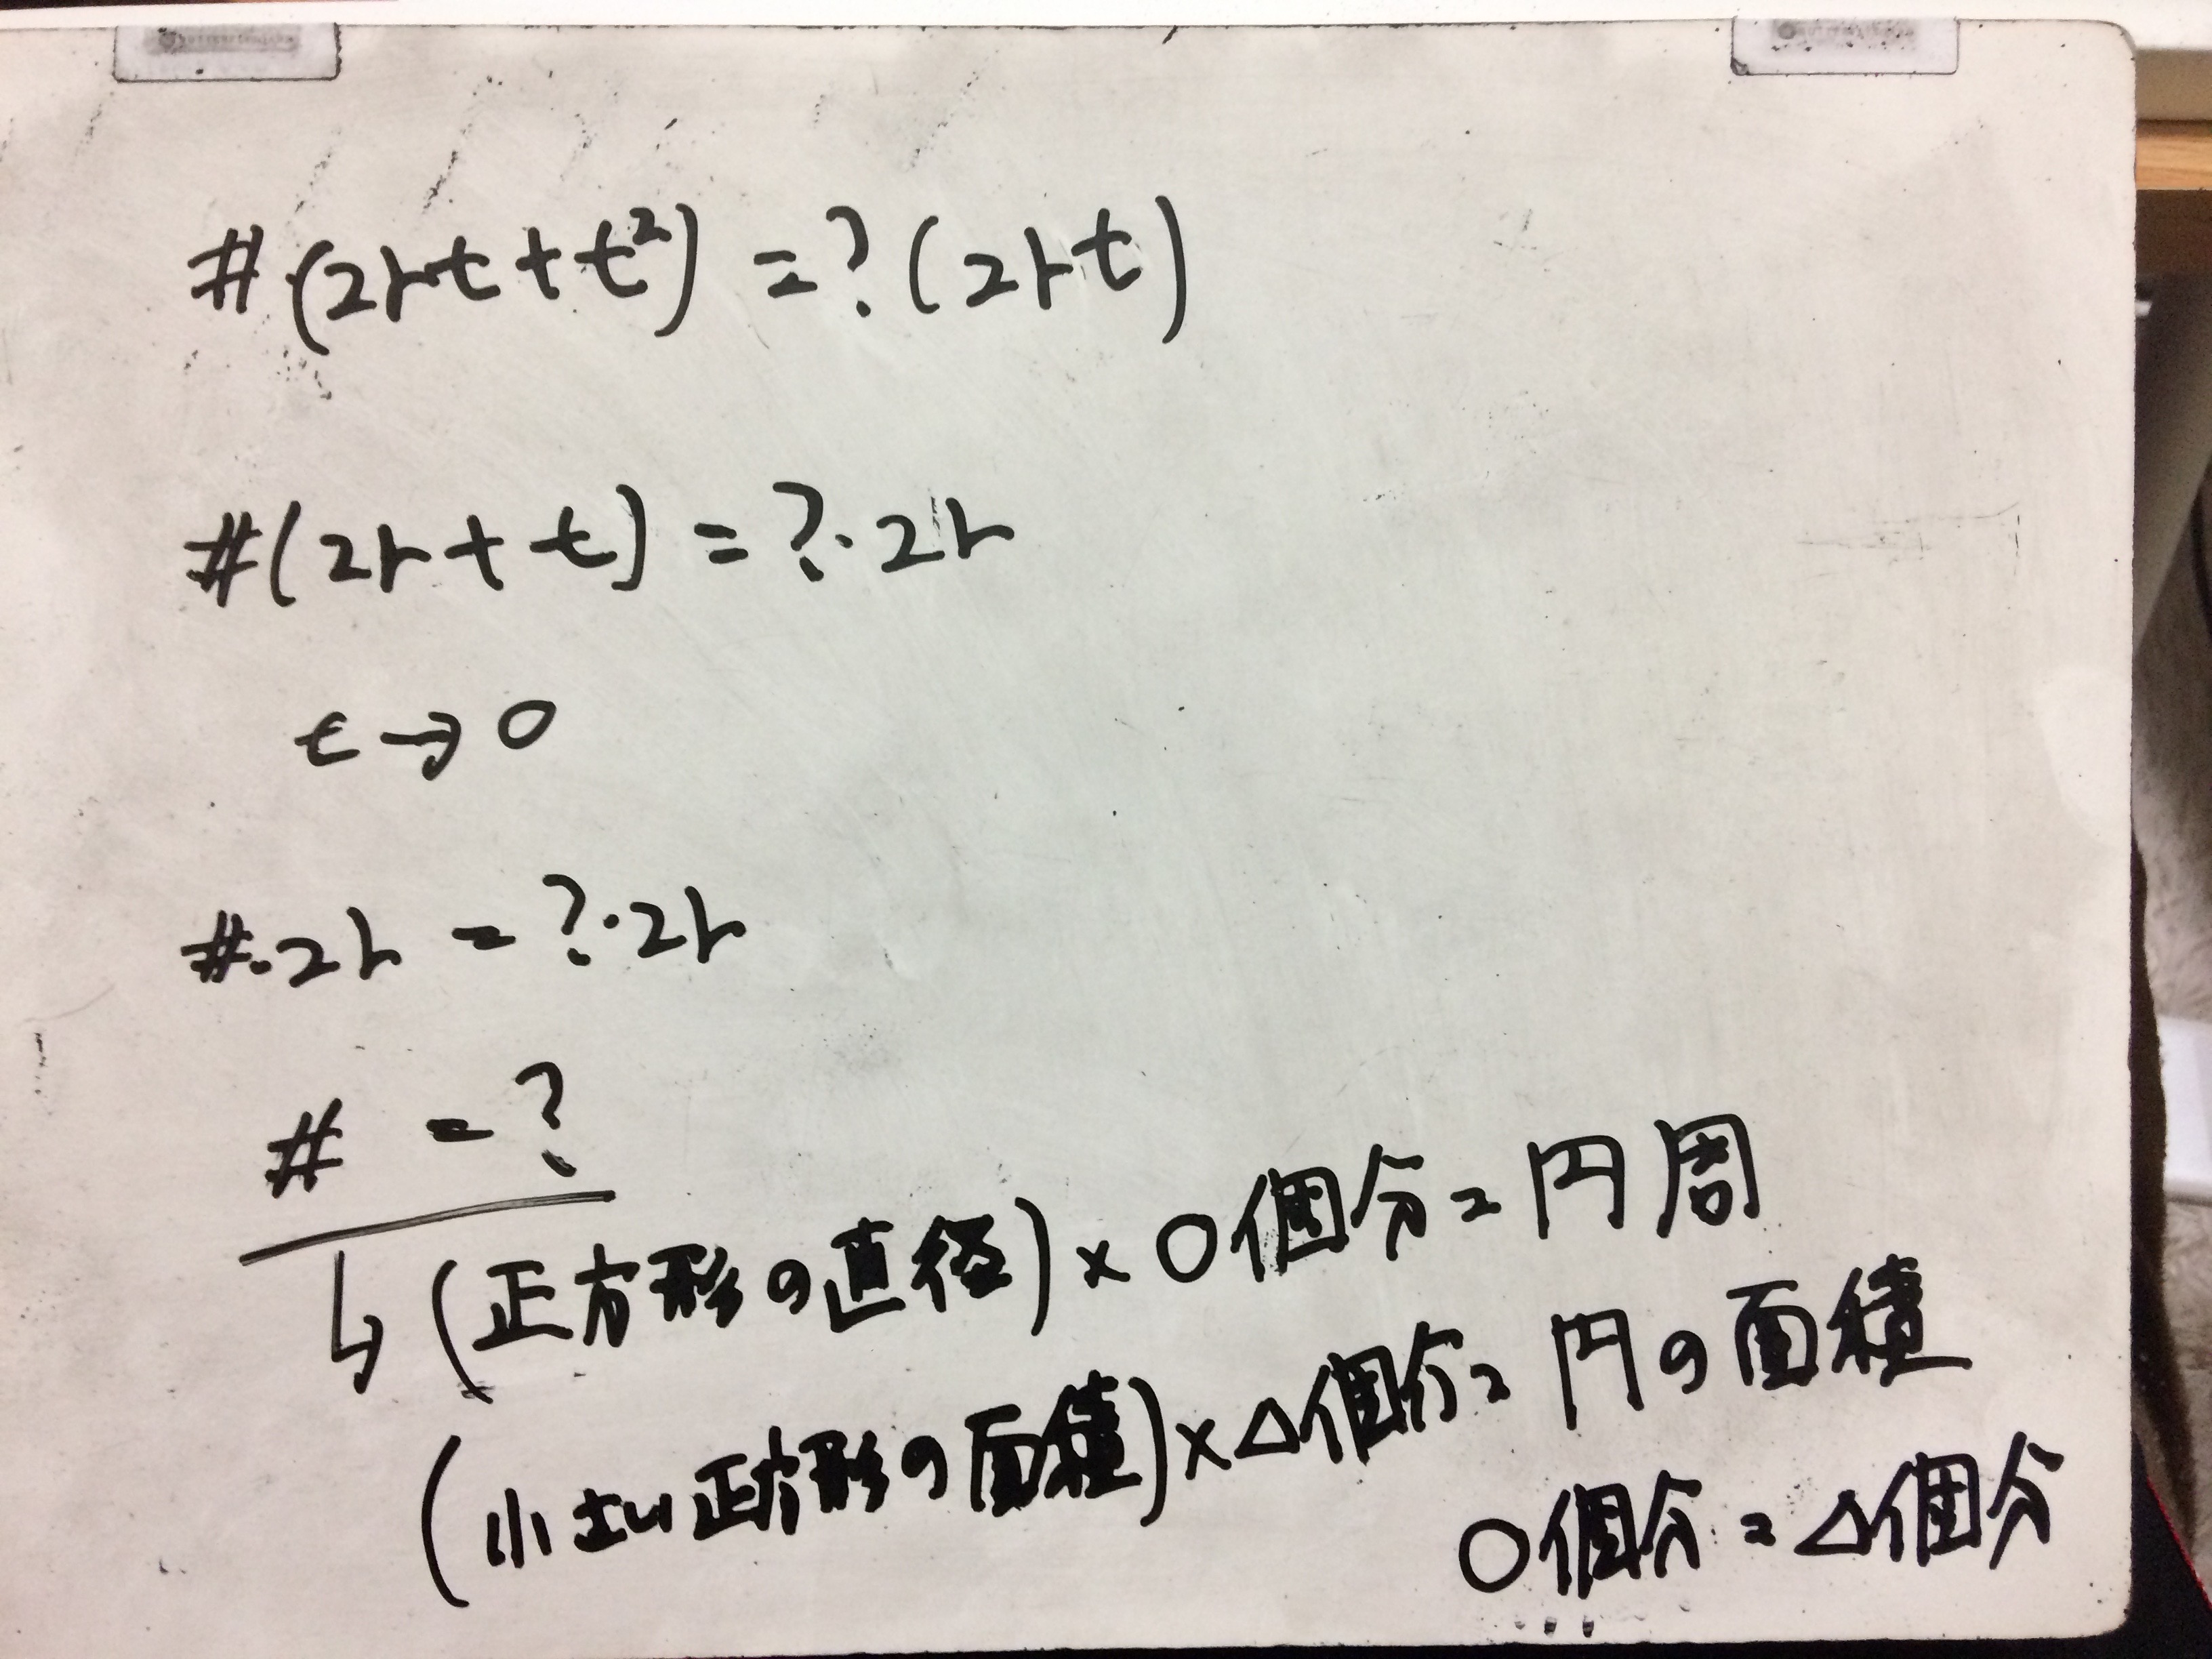 #(2rt+t²) =?(2rt)
#(2r+t) =?·2r
t→0
#·2r =?·2r
# = ?
↳(正方形の直径)×○個分=円周
(小さい正方形の面積)×△個分=円の面積
○個分=△個分